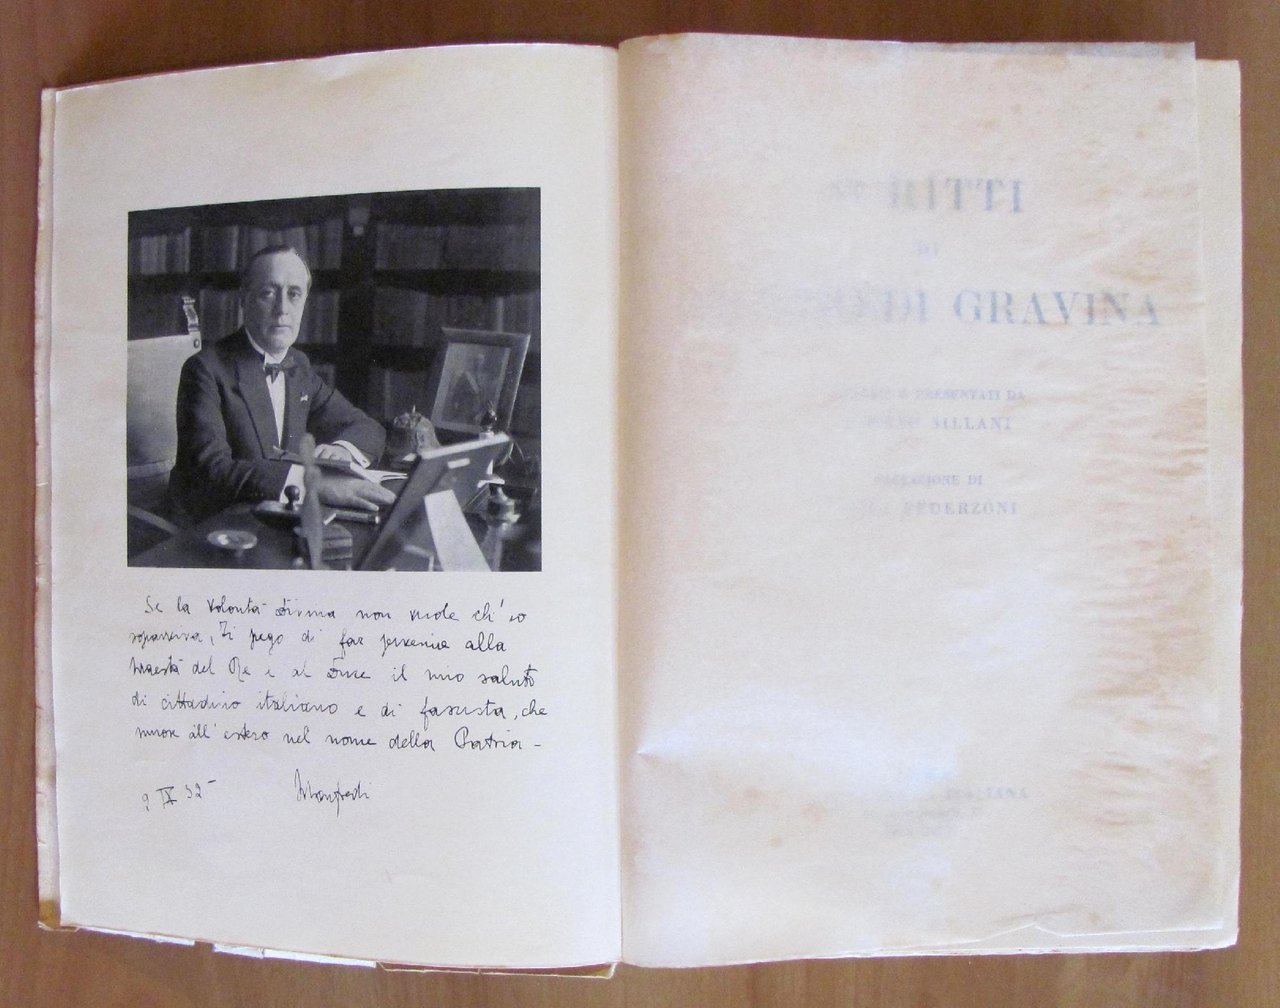 Se la Volontà Divina non vuole ch'io
sopravviva, Ti prego di far pervenire alla
Maestà del Re e al Duce il mio saluto
di cittadino italiano e di fascista, che
muore all'estero nel nome della Patria -
9 IX 32 - Manfredi
SCRITTI
DI
MANFREDI GRAVINA
PRESENTATI DA
SILLANI
PREFAZIONE DI
FEDERZONI
ITALIANA